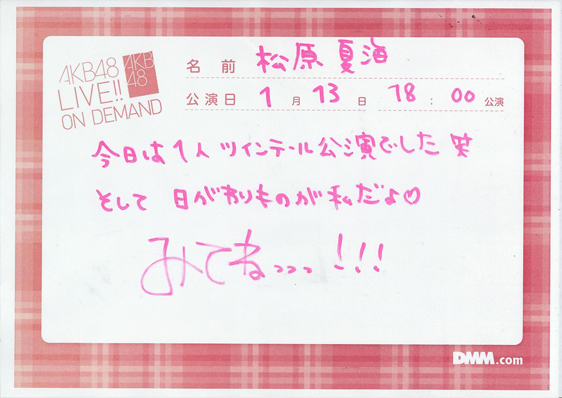 AKB48
LIVE!!
ON DEMAND
AKB
48
名前 松原夏海
公演日 1月13日 18:00公演
今日は1人ツインテール公演でした 笑
そして 日がわりものが私だよ♡
みてねっっっ!!!
DMM.com